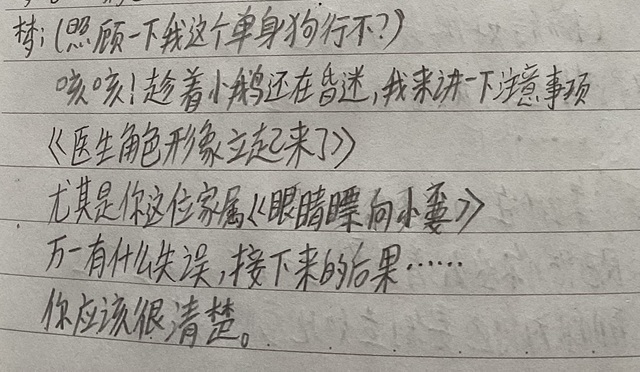 梦:(照顾一下我这个单身狗行不?)
咳咳!趁着小鹅还在昏迷,我来讲一下注意事项
《医生角色形象立起来了》
尤其是你这位家属《眼睛瞟向小蒌》
万一有什么失误,接下来的后果……
你应该很清楚。